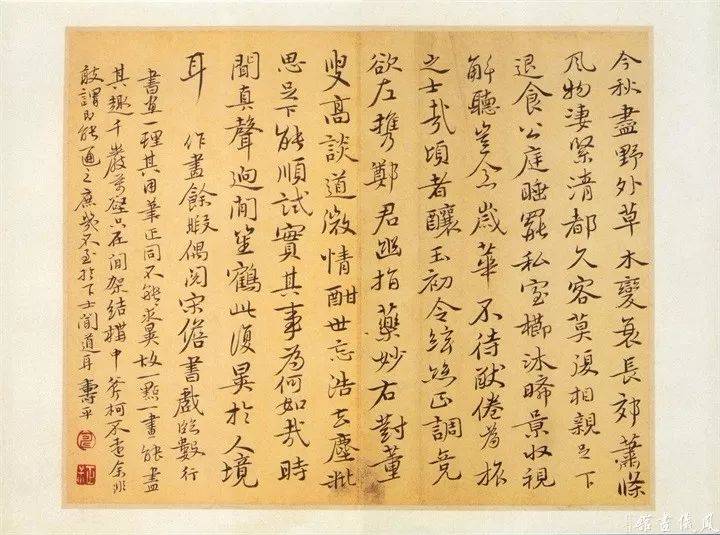 今秋盡野外草木變衰長郊蕭條
風物淒緊清都久客莫復相親足下
退食公庭睡罷私室櫛沐晞景收視
解聽豈念歲華不待猷倦者旅
之士哉頃者釀玉初令絃絲正調竟
欲左携鄭君幽指藥妙右對董
叟高談道微情酣世忘浩去塵疵
思足下能順試實其事為何如哉時
聞真聲迥聞笙鶴此復異於人境
耳 作畫餘暇偶閱宋儋書戲臨數行
書畫一理其用筆正同不能求異故一點一畫能盡
其趣千巖萬壑只在間架結構中斧柯不遠余非
敢謂即能通之庶幾不至於下士聞道耳 壽平